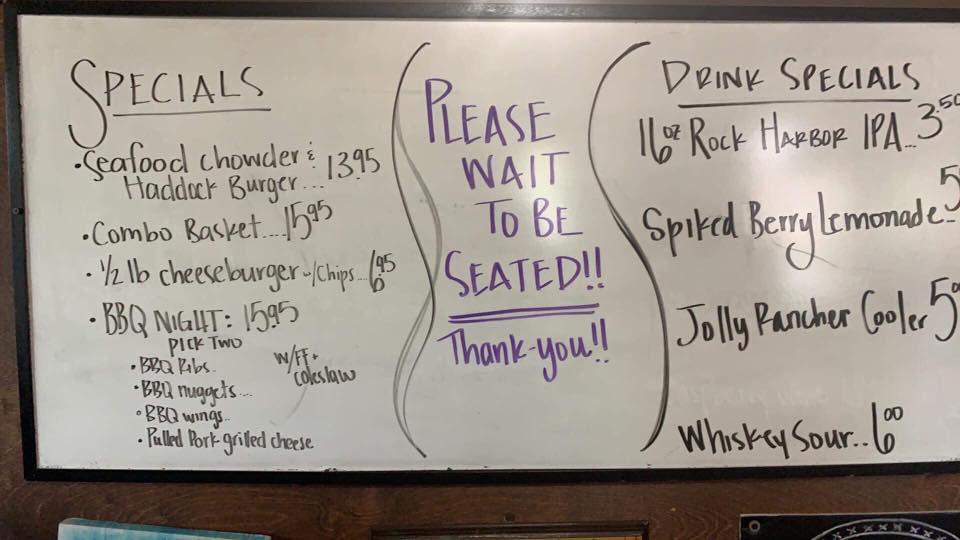 SPECIALS
• Seafood chowder &
Haddock Burger... 13.95
• Combo Basket.... 15.95
• 1/2 lb cheeseburger w/chips... 6.95
• BBQ NIGHT: 15.95
PICK TWO
• BBQ Ribs.
• BBQ nuggets...
• BBQ wings..
• Pulled Pork grilled cheese
w/FF +
coleslaw
PLEASE
WAIT
TO BE
SEATED!!
Thank-you!!
DRINK SPECIALS
16oz ROCK HARBOR IPA... 3.50
Spiked Berry Lemonade.. 5
Jolly Rancher Cooler 5
Whiskey Sour.. 6.00